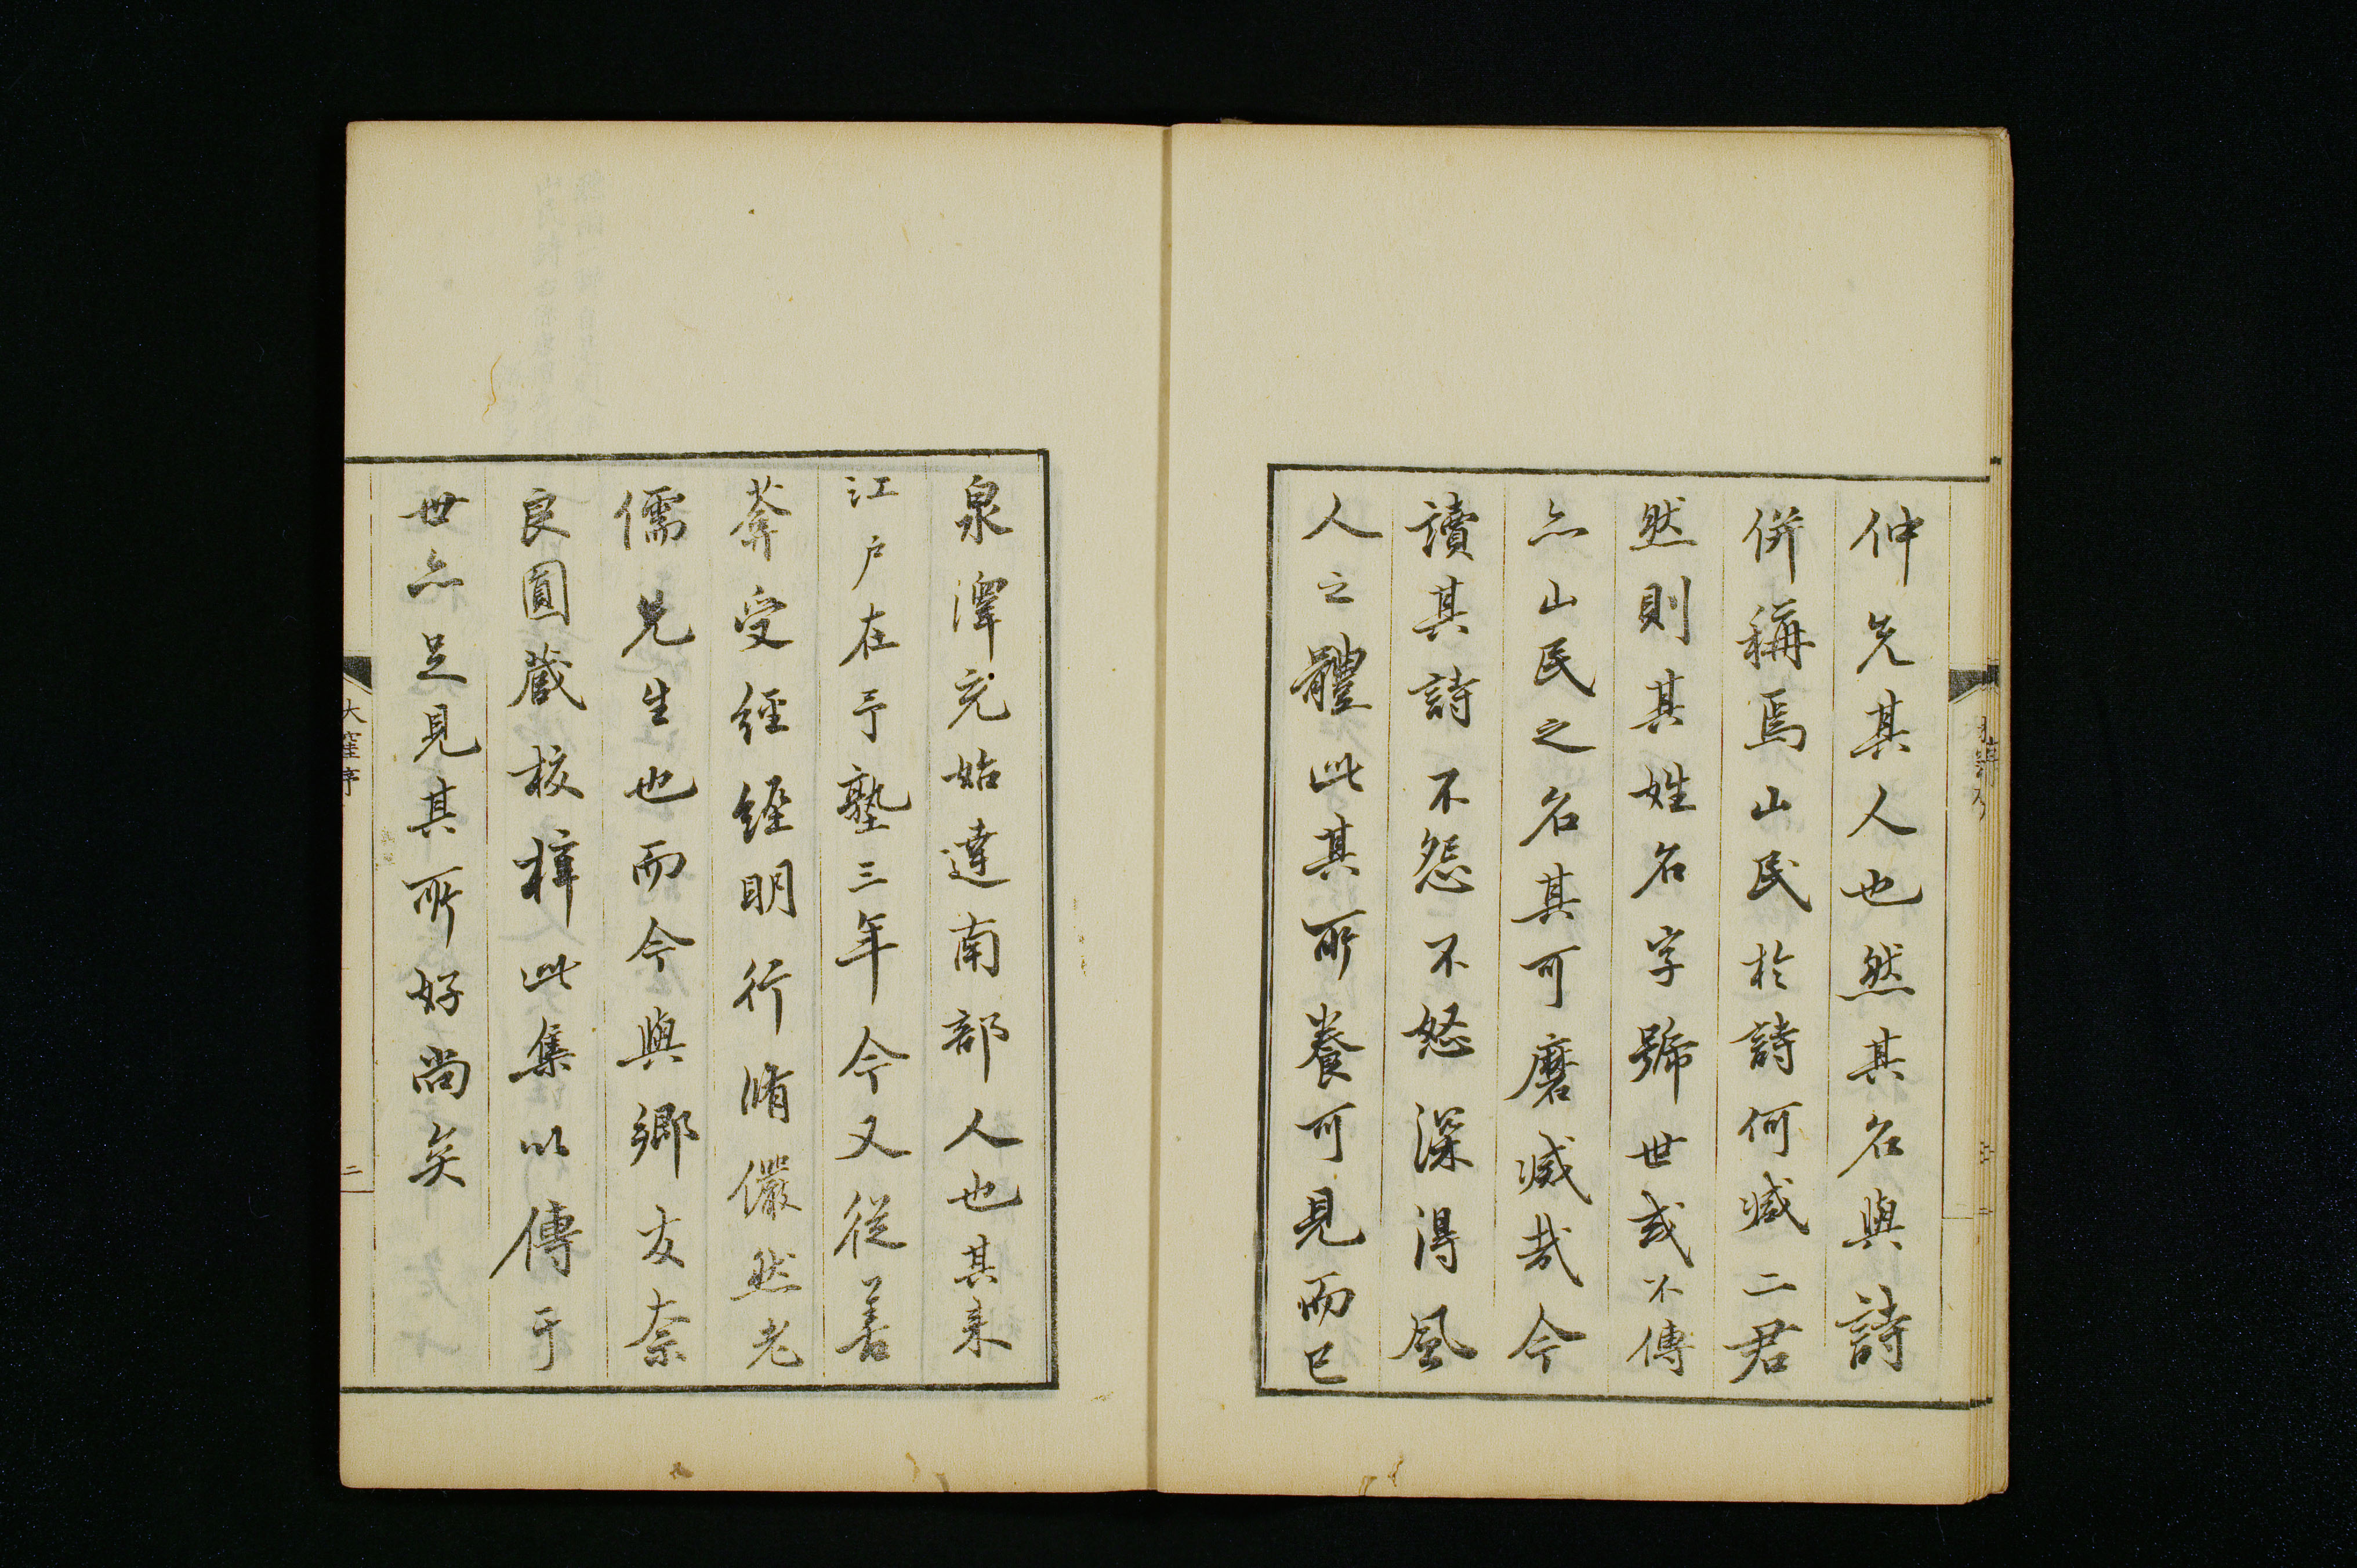 仲先其人也然其名與詩
併稱焉山民於詩何減二君
然則其姓名字號世或不傳
亦山民之名其可磨滅哉今
讀其詩不怨不怒深得風
人之體此其所養可見而已
泉澤充始達南部人也其来
江戶在予塾三年今又從善
菴受經經明行脩儼然老
儒先生也而今與鄉友奈
良圓藏校梓此集以傳于
世亦足見其所好尚矣
大窪序
二